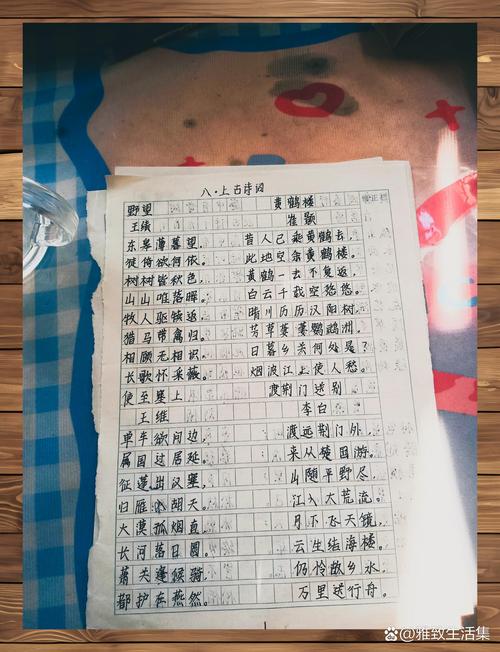 八·上古诗词
野望
王绩
东皋薄暮望,
徙倚欲何依。
树树皆秋色,
山山唯落晖。
牧人驱犊返,
猎马带禽归。
相顾无相识,
长歌怀采薇。
使至塞上
王维
单车欲问边,
属国过居延。
征蓬出汉塞,
归雁入胡天。
大漠孤烟直,
长河落日圆。
萧关逢候骑,
都护在燕然。
黄鹤楼
崔颢
昔人已乘黄鹤去,
此地空余黄鹤楼。
黄鹤一去不复返,
白云千载空悠悠。
晴川历历汉阳树,
芳草萋萋鹦鹉洲。
日暮乡关何处是?
烟波江上使人愁。
渡荆门送别
李白
渡远荆门外,
来从楚国游。
山随平野尽,
江入大荒流。
月下飞天镜,
云生结海楼。
仍怜故乡水,
万里送行舟。
@雅致生活集